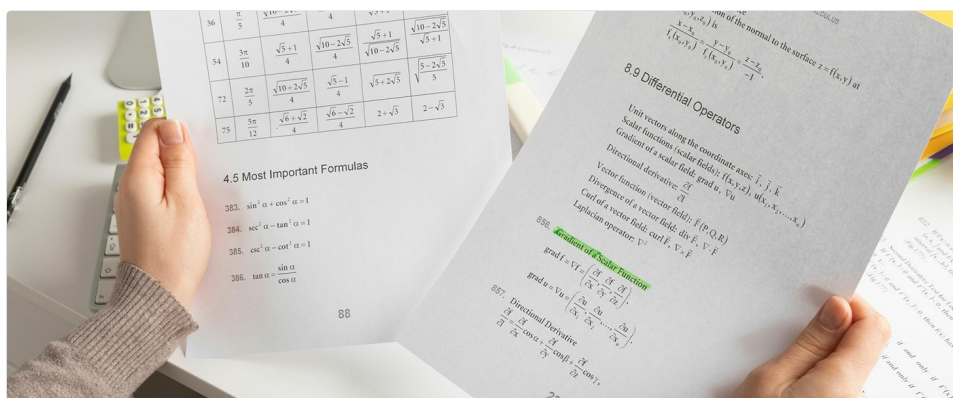 36 π/5 4 4
54 3π/10 √5+1/4 √10−2√5/4 √5+1/√10−2√5 √10−2√5/√5+1
72 2π/5 √10+2√5/4 √5−1/4 √5+2√5 √5−2√5/5
75 5π/12 √6+√2/4 √6−√2/4 2+√3 2−√3
4.5 Most Important Formulas
383. sin² α + cos² α = 1
384. sec² α − tan² α = 1
385. csc² α − cot² α = 1
386. tan α = sin α/cos α
88
ion of the normal to the surface z = f(x, y) at
y₀, z₀) is
x − x₀/fₓ(x₀, y₀) = y − y₀/fᵧ(x₀, y₀) = z − z₀/−1
8.9 Differential Operators
Unit vectors along the coordinate axes: i, j, k
Scalar functions (scalar fields): f(x, y, z), u(x₁, x₂, ..., xₙ)
Gradient of a scalar field: grad u, ∇u
Directional derivative: ∂f/∂l
Vector function (vector field): F(P, Q, R)
Divergence of a vector field: div F, ∇·F
Curl of a vector field: curl F, ∇×F
Laplacian operator: ∇²
856. Gradient of a Scalar Function
grad f = ∇f = (∂f/∂x, ∂f/∂y, ∂f/∂z),
grad u = ∇u = (∂u/∂x₁, ∂u/∂x₂, ..., ∂u/∂xₙ).
857. Directional Derivative
∂f/∂l = ∂f/∂x cos α + ∂f/∂y cos β + ∂f/∂z cos γ,